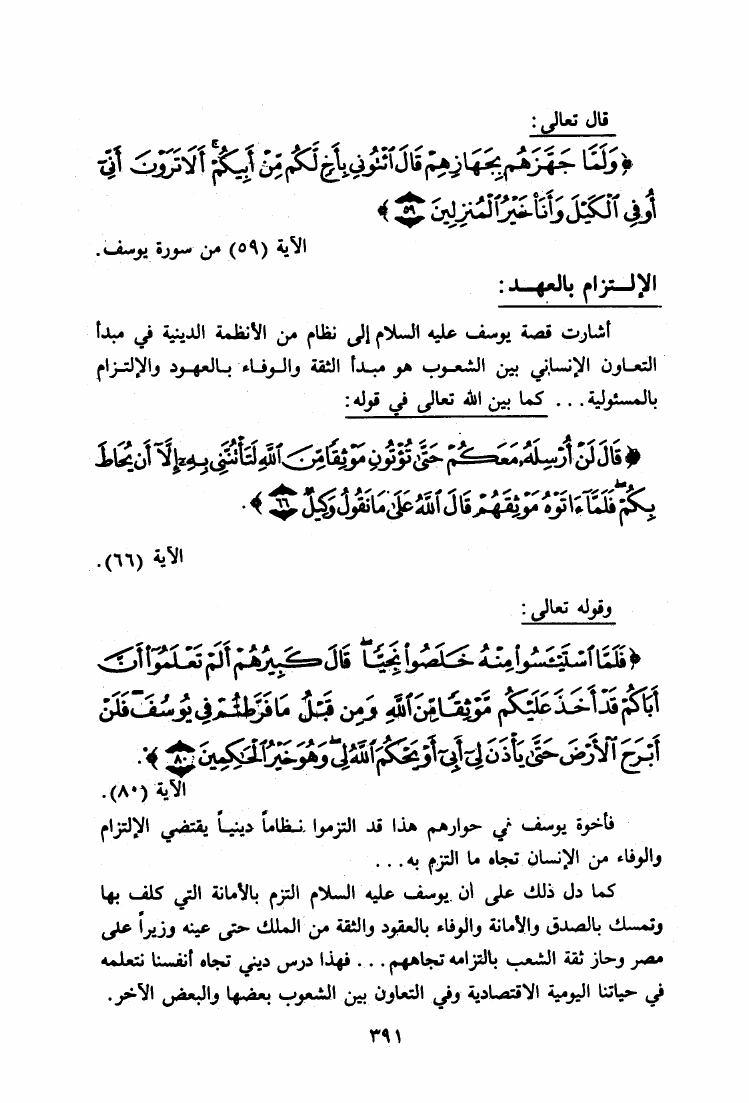 قال تعالى:
﴿ وَلَمَّا جَهَّزَهُم بِجَهَازِهِمْ قَالَ ٱئْتُونِي بِأَخٍ لَّكُم مِّنْ أَبِيكُمْ ۚ أَلَا تَرَوْنَ أَنِّيٓ
أُوفِي ٱلْكَيْلَ وَأَنَا۠ خَيْرُ ٱلْمُنزِلِينَ ٥٩ ﴾
الآية (٥٩) من سورة يوسف.
الإلـتزام بالعهـد:
أشارت قصة يوسف عليه السلام إلى نظام من الأنظمة الدينية في مبدأ
التعـاون الإنسـاني بين الشعـوب هو مبـدأ الثقة والـوفـاء بـالعهـود والإلتـزام
بالمسئولية... كما بين الله تعالى في قوله:
﴿ قَالَ لَنْ أُرْسِلَهُۥ مَعَكُمْ حَتَّىٰ تُؤْتُونِ مَوْثِقًا مِّنَ ٱللَّهِ لَتَأْتُنَّنِي بِهِۦٓ إِلَّآ أَن يُحَاطَ
بِكُمْ ۖ فَلَمَّآ ءَاتَوْهُ مَوْثِقَهُمْ قَالَ ٱللَّهُ عَلَىٰ مَا نَقُولُ وَكِيلٌ ٦٦ ﴾.
الآية (٦٦).
وقوله تعالى:
﴿ فَلَمَّا ٱسْتَيْـَٔسُوا۟ مِنْهُ خَلَصُوا۟ نَجِيًّا ۖ قَالَ كَبِيرُهُمْ أَلَمْ تَعْلَمُوٓا۟ أَنَّ
أَبَاكُمْ قَدْ أَخَذَ عَلَيْكُم مَّوْثِقًا مِّنَ ٱللَّهِ وَمِن قَبْلُ مَا فَرَّطتُمْ فِي يُوسُفَ ۖ فَلَنْ
أَبْرَحَ ٱلْأَرْضَ حَتَّىٰ يَأْذَنَ لِيٓ أَبِيٓ أَوْ يَحْكُمَ ٱللَّهُ لِي ۖ وَهُوَ خَيْرُ ٱلْحَٰكِمِينَ ٨٠ ﴾.
الآية (٨٠).
فأخوة يوسف في حوارهم هذا قد التزموا نـظاماً دينيـاً يقتضي الإلتزام
والوفاء من الإنسان تجاه ما التزم به...
كما دل ذلك على أن يوسف عليه السلام التزم بالأمانة التي كلف بها
وتمسك بالصدق والأمانة والوفاء بالعقود والثقة من الملك حتى عينه وزيراً على
مصر وحاز ثقة الشعب بالتزامه تجاههم... فهذا درس ديني تجاه أنفسنا نتعلمه
في حياتنا اليومية الاقتصادية وفي التعاون بين الشعوب بعضها والبعض الآخر.
٣٩١